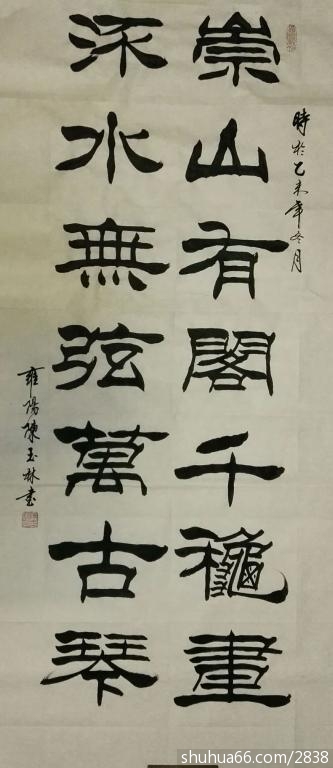 時於乙未年冬月
崇山有閣千龝畫
㳅水無弦萬古琴
雍陽陳玉林書
shuhua66.com/2838